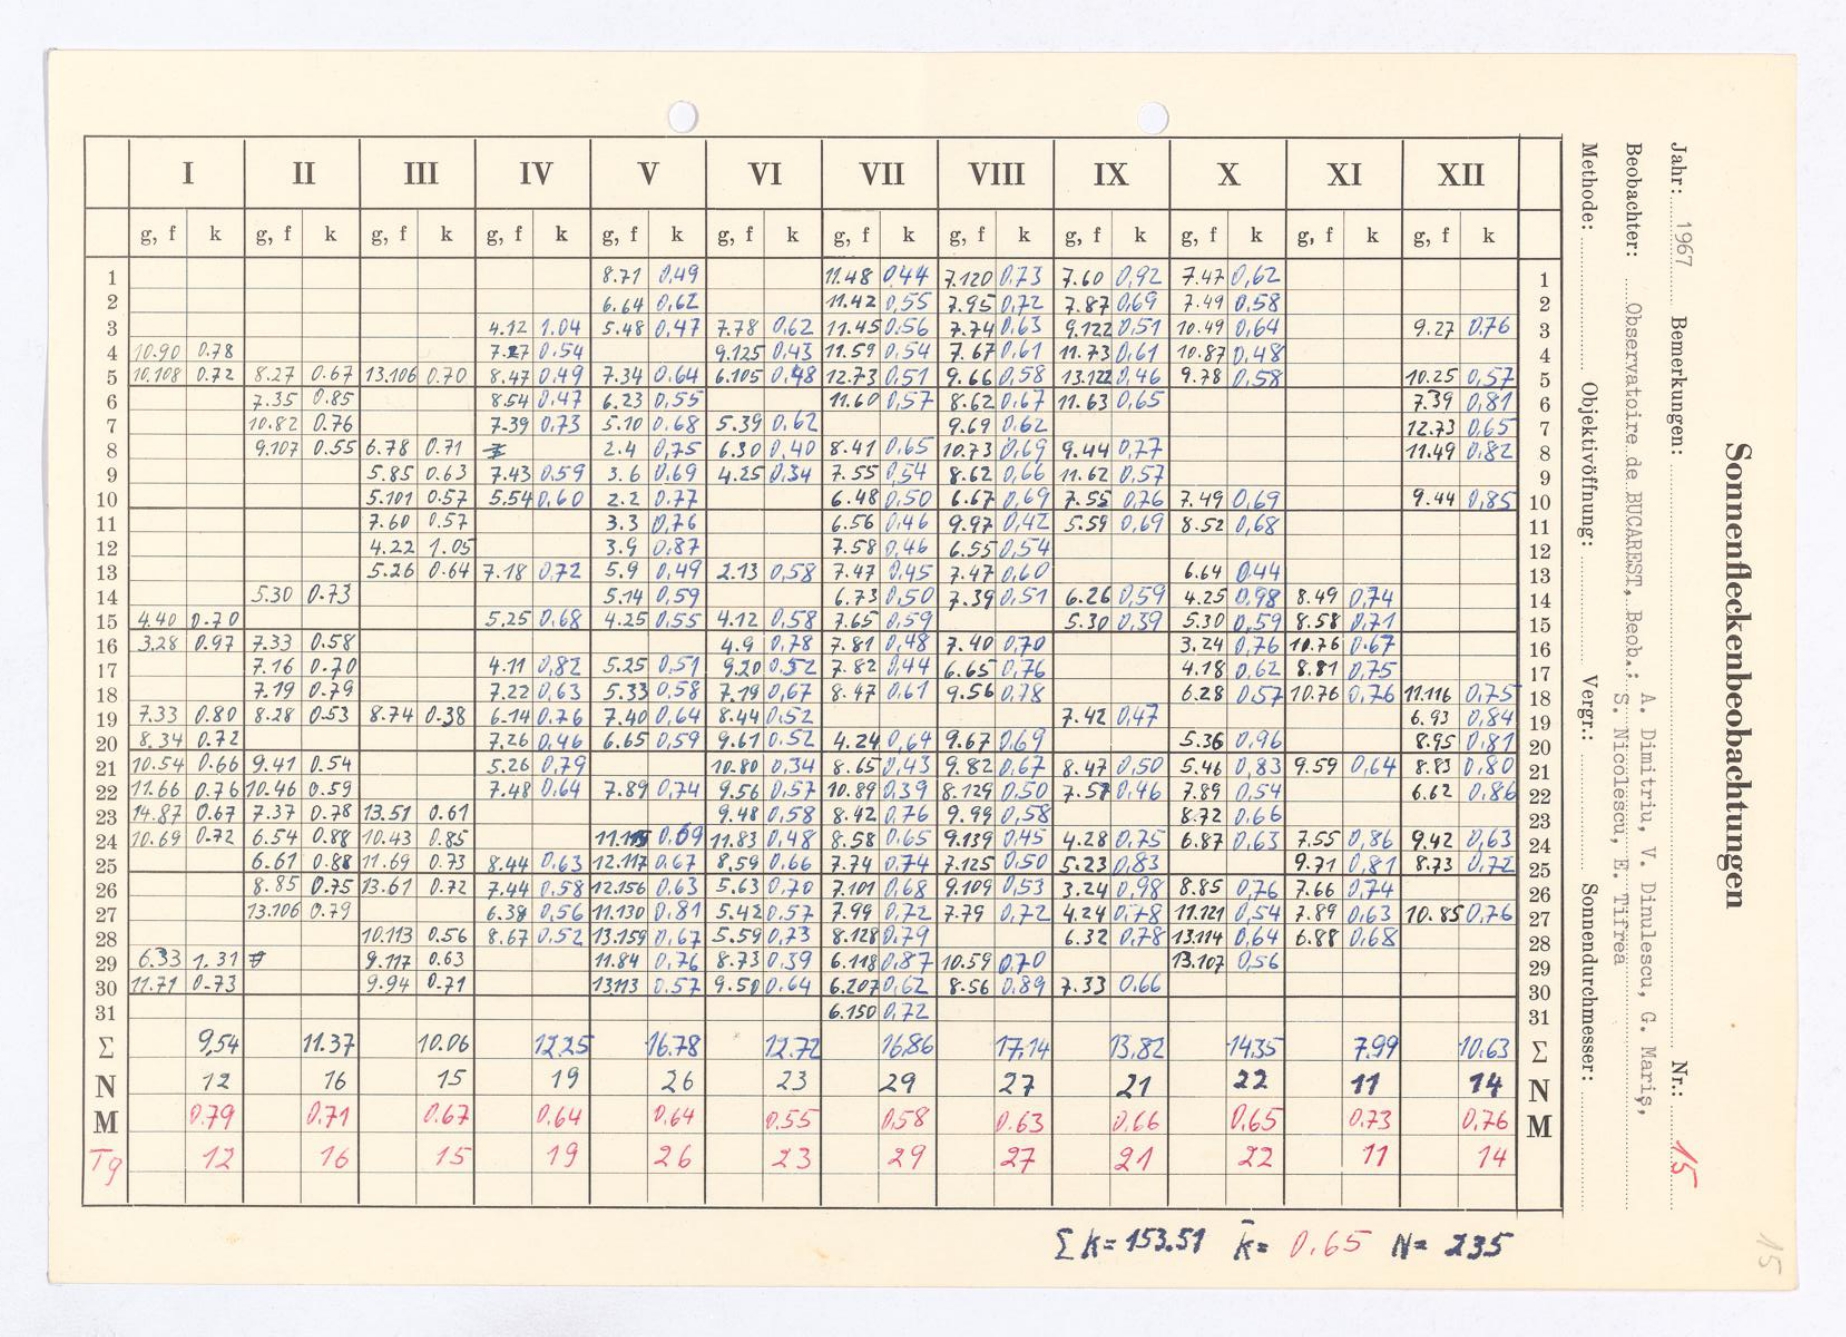 Sonnenfleckenbeobachtungen
Jahr: 1967 Bemerkungen: Nr.: 15
Beobachter: Observatoire de BUCAREST, Beob.: A. Dimitriu, V. Dinulescu, G. Mariş,
S. Nicolescu, E. Tifrea
Methode: Objektivöffnung: Vergr.: Sonnendurchmesser:
I II III IV V VI VII VIII IX X XI XII
g, f k g, f k g, f k g, f k g, f k g, f k g, f k g, f k g, f k g, f k g, f k g, f k
1 8.71 0,49 11.48 0,44 7.120 0.73 7.60 0,92 7.47 0,62 1
2 6.64 0,62 11.42 0,55 7.95 0,72 7.87 0,69 7.49 0,58 2
3 4.12 1.04 5.48 0,47 7.78 0,62 11.45 0.56 7.74 0,63 9.122 0,51 10.49 0,64 9.27 0,76 3
4 10.90 0.78 7.27 0.54 9.125 0,43 11.59 0,54 7.67 0,61 11.73 0,61 10.87 0,48 4
5 10.108 0.72 8.27 0.67 13.106 0.70 8.47 0,49 7.34 0.64 6.105 0,48 12.73 0,51 9.66 0,58 13.122 0,46 9.78 0,58 10.25 0,57 5
6 7.35 0.85 8.54 0,47 6.23 0,55 11.60 0,57 8.62 0,67 11.63 0,65 7.39 0,81 6
7 10.82 0.76 7.39 0,73 5.10 0,68 5.39 0,62 9.69 0,62 12.73 0,65 7
8 9.107 0.55 6.78 0.71 2.4 0,75 6.30 0,40 8.41 0,65 10.73 0,69 9.44 0,77 11.49 0,82 8
9 5.85 0.63 7.43 0,59 3.6 0,69 4.25 0,34 7.55 0,54 8.62 0,66 11.62 0,57 9
10 5.101 0.57 5.54 0,60 2.2 0.77 6.48 0,50 6.67 0,69 7.55 0,76 7.49 0,69 9.44 0,85 10
11 7.60 0.57 3.3 0,76 6.56 0,46 9.97 0,42 5.59 0,69 8.52 0,68 11
12 4.22 1.05 3.9 0,87 7.58 0,46 6.55 0,54 12
13 5.26 0.64 7.18 0,72 5.9 0,49 2.13 0,58 7.47 0,45 7.47 0,60 6.64 0,44 13
14 5.30 0.73 5.14 0,59 6.73 0,50 7.39 0,51 6.26 0,59 4.25 0,98 8.49 0,74 14
15 4.40 0.70 5.25 0,68 4.25 0,55 4.12 0,58 7.65 0,59 5.30 0,39 5.30 0,59 8.58 0,71 15
16 3.28 0.97 7.33 0.58 4.9 0,78 7.81 0,48 7.40 0,70 3.24 0,76 10.76 0.67 16
17 7.16 0.70 4.11 0,82 5.25 0,51 9.20 0.52 7.82 0,44 6.65 0,76 4.18 0,62 8.81 0,75 17
18 7.19 0.79 7.22 0,63 5.33 0,58 7.19 0,67 8.47 0,61 9.56 0,78 6.28 0,57 10.76 0,76 11.116 0,75 18
19 7.33 0.80 8.28 0.53 8.74 0.38 6.14 0.76 7.40 0,64 8.44 0,52 7.42 0,47 6.93 0,84 19
20 8.34 0.72 7.26 0,46 6.65 0,59 9.61 0.52 4.24 0,64 9.67 0,69 5.36 0,96 8.95 0,81 20
21 10.54 0.66 9.41 0.54 5.26 0,79 10.80 0,34 8.65 0,43 9.82 0,67 8.47 0,50 5.46 0,83 9.59 0,64 8.83 0,80 21
22 11.66 0.76 10.46 0.59 7.48 0,64 7.89 0,74 9.56 0,57 10.89 0,39 8.129 0,50 7.57 0,46 7.89 0,54 6.62 0,86 22
23 14.87 0.67 7.37 0.78 13.51 0.61 9.48 0,58 8.42 0,76 9.99 0,58 8.72 0,66 23
24 10.69 0.72 6.54 0.88 10.43 0.85 0.69 11.83 0,48 8.58 0,65 9.139 0,45 4.28 0,75 6.87 0,63 7.55 0,86 9.42 0,63 24
25 6.61 0.88 11.69 0.73 8.44 0.63 12.117 0,67 8,59 0.66 7.74 0,74 7.125 0.50 5.23 0,83 9.71 0,81 8.73 0,72 25
26 8.85 0.75 13.61 0.72 7.44 0,58 12.156 0,63 5.63 0,70 7.101 0,68 9.109 0,53 3.24 0,98 8.85 0,76 7.66 0,74 26
27 13.106 0.79 6.38 0,56 11.130 0,81 5.42 0,57 7.99 0,72 7.79 0,72 4.24 0,78 11.121 0,54 7.89 0,63 10.85 0,76 27
28 10.113 0.56 8.67 0,52 13.159 0,67 5.59 0,73 8.128 0,79 6.32 0,78 13.114 0,64 6.88 0,68 28
29 6.33 1.31 9.117 0.63 11.84 0,76 8.73 0,39 6.118 0,87 10.59 0,70 13.107 0,56 29
30 11.71 0.73 9.94 0.71 13.113 0.57 9.50 0.64 6.207 0,62 8.56 0,89 7.33 0,66 30
31 6.150 0,72 31
Σ 9,54 11.37 10.06 12,25 16.78 12.72 16,86 17,14 13,82 14,35 7,99 10,63 Σ
N 12 16 15 19 26 23 29 27 21 22 11 14 N
M 0.79 0.71 0.67 0,64 0.64 0.55 0,58 0.63 0,66 0,65 0,73 0,76 M
Tg 12 16 15 19 26 23 29 27 21 22 11 14
Σk = 153.51 k̄ = 0,65 N = 235
15